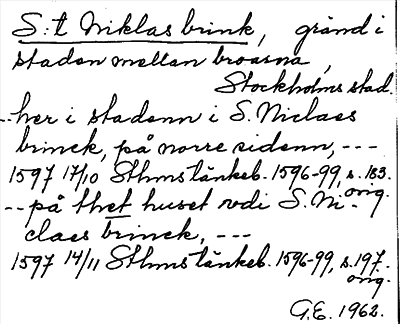 S:t Niklas brink, gränd i
staden mellan broarna,
Stockholms stad.
--her i stadenn i S. Niclaes
brinck, på norre sidenn, ---
1597 17/10 Sthms tänkeb. 1596-99, s. 183.
orig.
--på thet huset vdi S. Ni-
claes brinck, ---
1597 14/11 Sthms tänkeb. 1596-99, s. 197.
orig.
G.E. 1962.